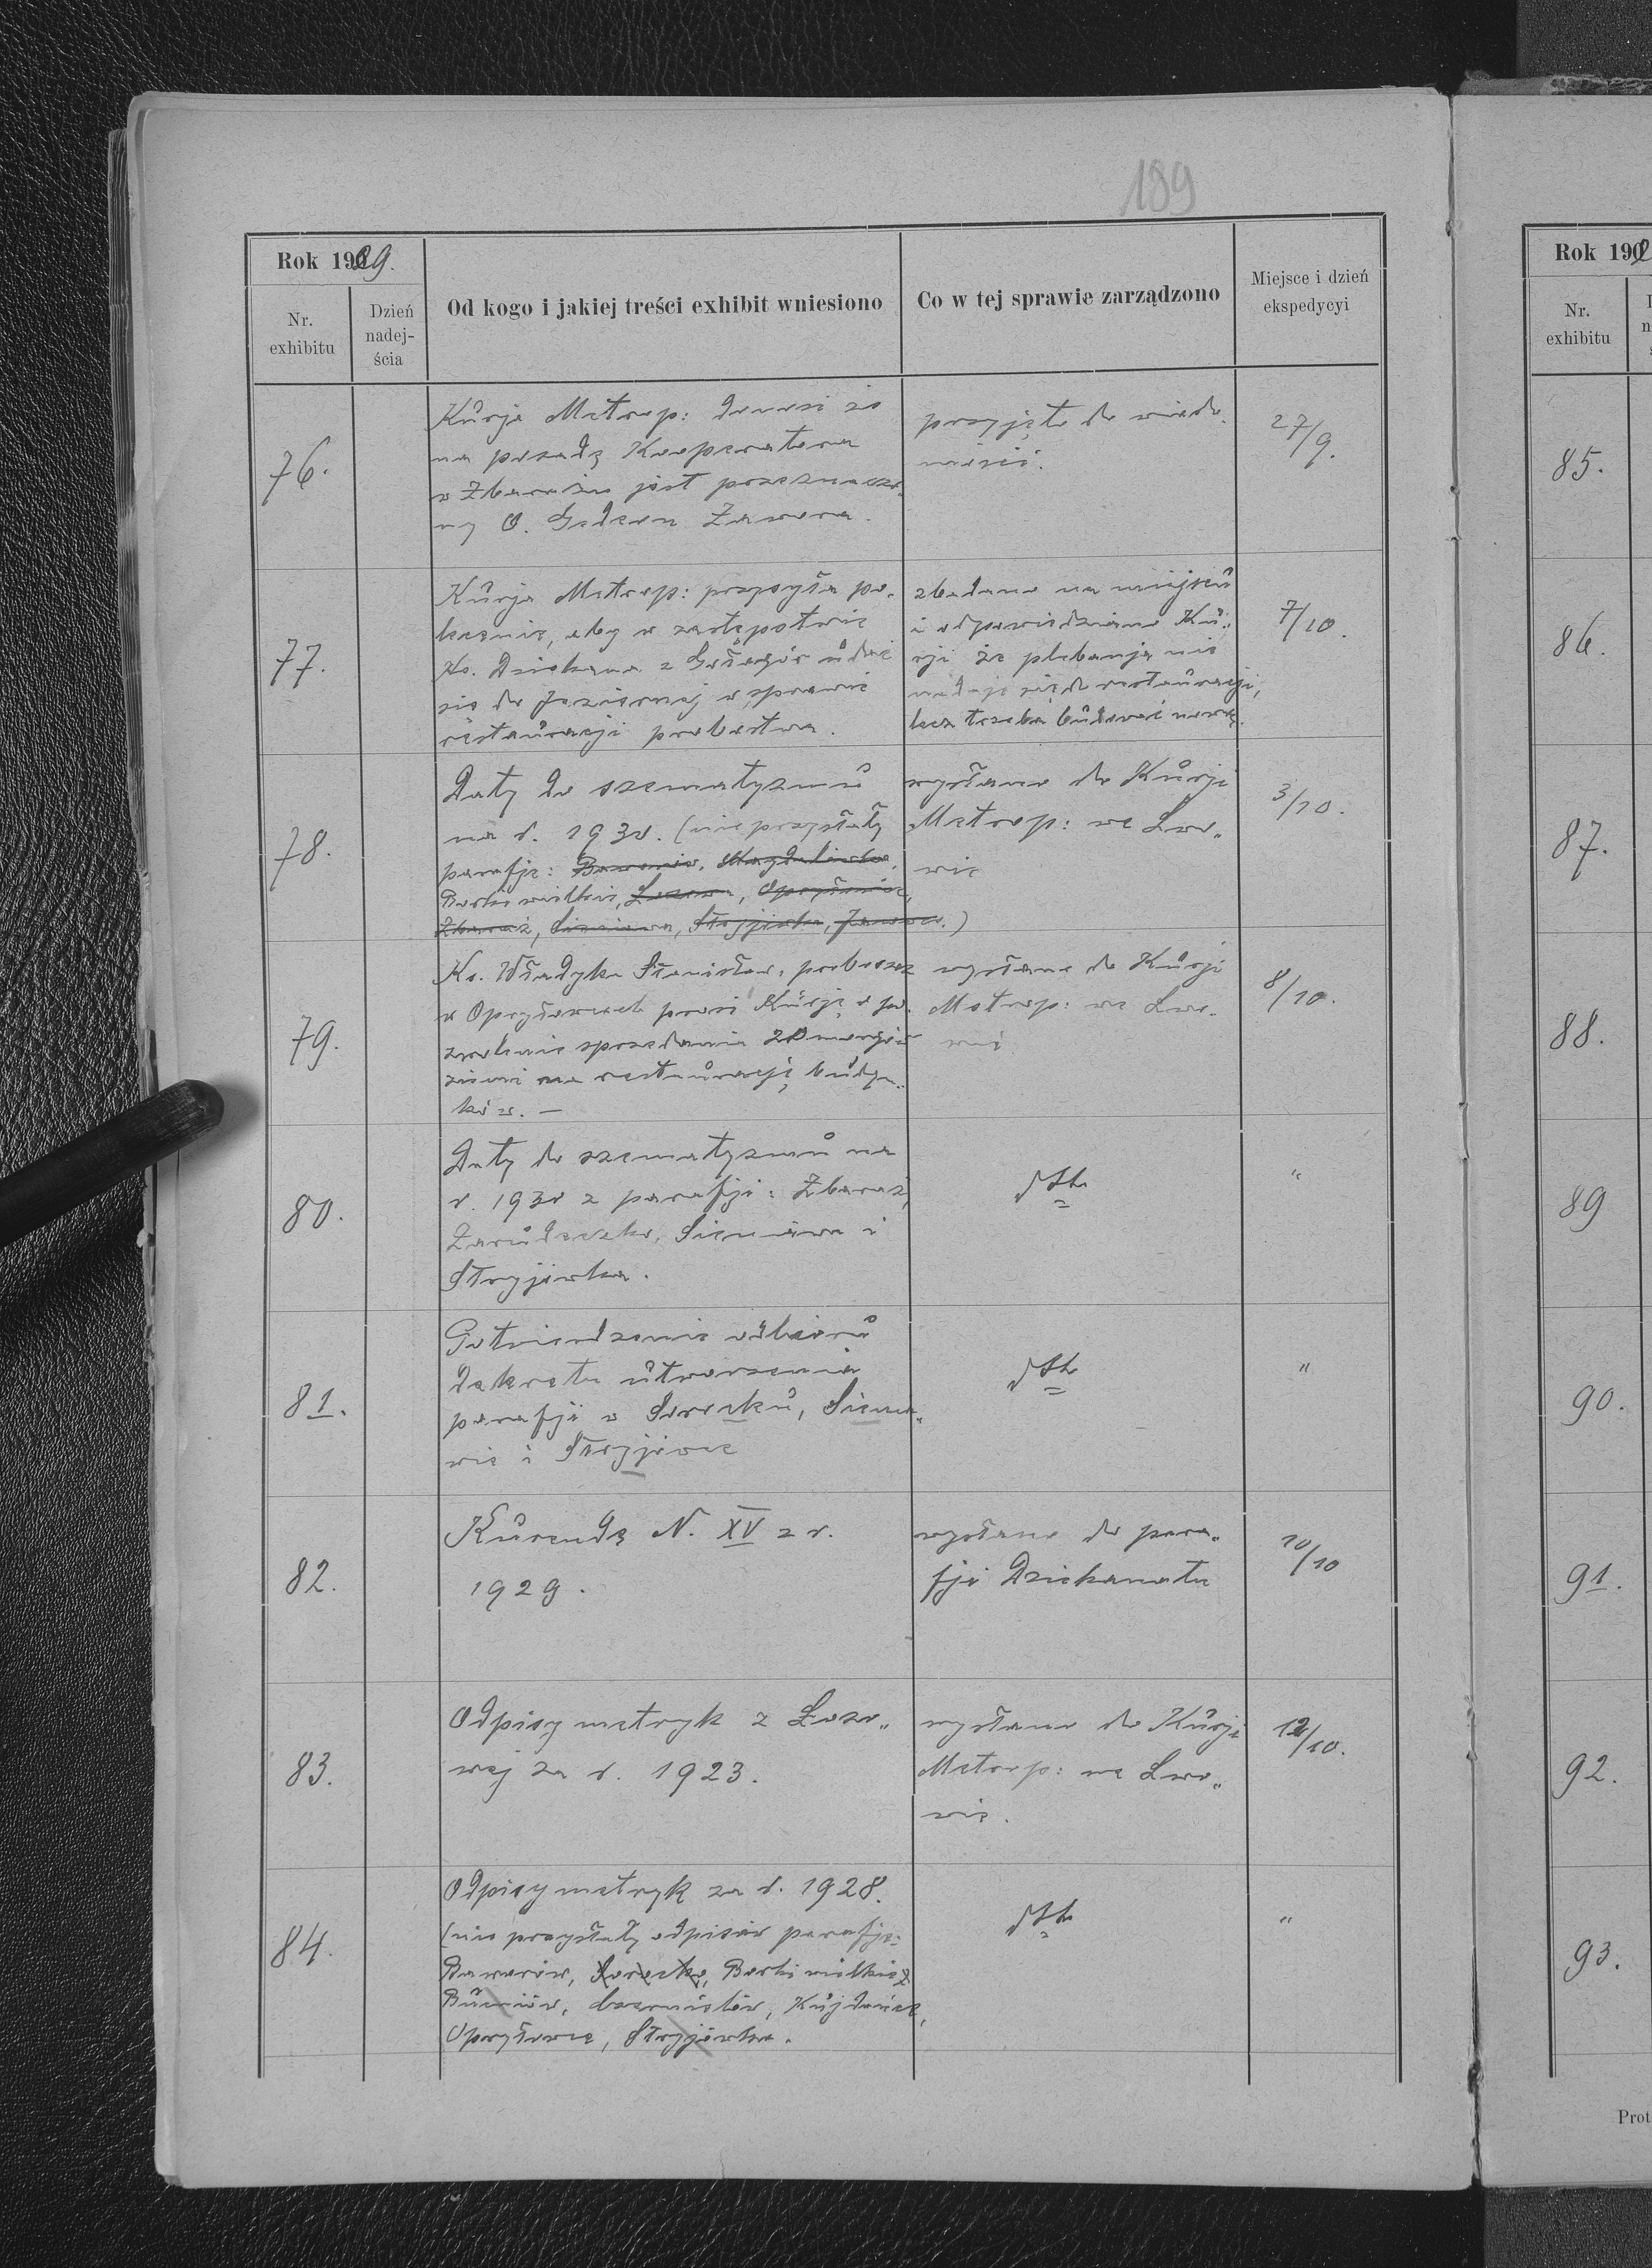 189
Rok 1929.
Nr. exhibitu
Dzień nadejścia
Od kogo i jakiej treści exhibit wniesiono
Co w tej sprawie zarządzono
Miejsce i dzień ekspedycyi
76.
Kurja Metrop: donosi że
na posadę Kooperatora
w Zbarażu jest przeznaczo„
ny O. Gedeon
przyjęto do wiado„
mości.
27/9.
77.
Kurja Metrop: przysyła po„
lecenie, aby w zastępstwie
Ks. Dziekana z udać
się do Jeziernej w sprawie
restauracji probostwa.
zbadano na miejscu
i odpowiedziano Ku„
rji że plebanja nie
nadaje się do restauracji,
lecz trzeba budować nową.
7/10.
78.
Daty do szematyzmu
na r. 1930. (nie przysłały
parafje: Baworów, Magdalówka,
Borki wielkie, Łozowa, Opryłowce,
Zbaraż, Sieniawa, Stryjówka, )
wysłano do Kurji
Metrop: we Lwo„
wie
3/10.
79.
Ks. Władyka Stanisław, proboszcz
w Opryłowcach prosi Kurję o po„
zwolenie sprzedania 20 morgów
ziemi na restaurację budyn„
ków. —
wysłano do Kurji
Metrop: we Lwo„
wie
8/10.
80.
Daty do szematyzmu na
r. 1930 z parafji: Zbaraż,
Zarudeczko, Sieniawa i
Stryjówka.
dtto
"
81.
Potwierdzenie odbioru
dekretu utworzenia
parafji w Sorocku, Sienia„
wie i Stryjówce
dtto
"
82.
Kurendę N. XV z r.
1929.
wysłano do para„
fji Dziekanatu
10/10
83.
Odpisy metryk z Łozo„
wej za r. 1923.
wysłano do Kurji
Metrop: we Lwo„
wie.
12/10.
84.
Odpisy metryk za r. 1928.
(nie przysłały odpisów parafje:
Baworów, Sorocko, Borki wielkie,
Bucniów, Czernielów, Kujdańce,
Opryłowce, Stryjówka.
dtto
"
Rok 190
Nr. exhibitu
85.
86.
87.
88.
89
90.
91.
92.
93.
Prot